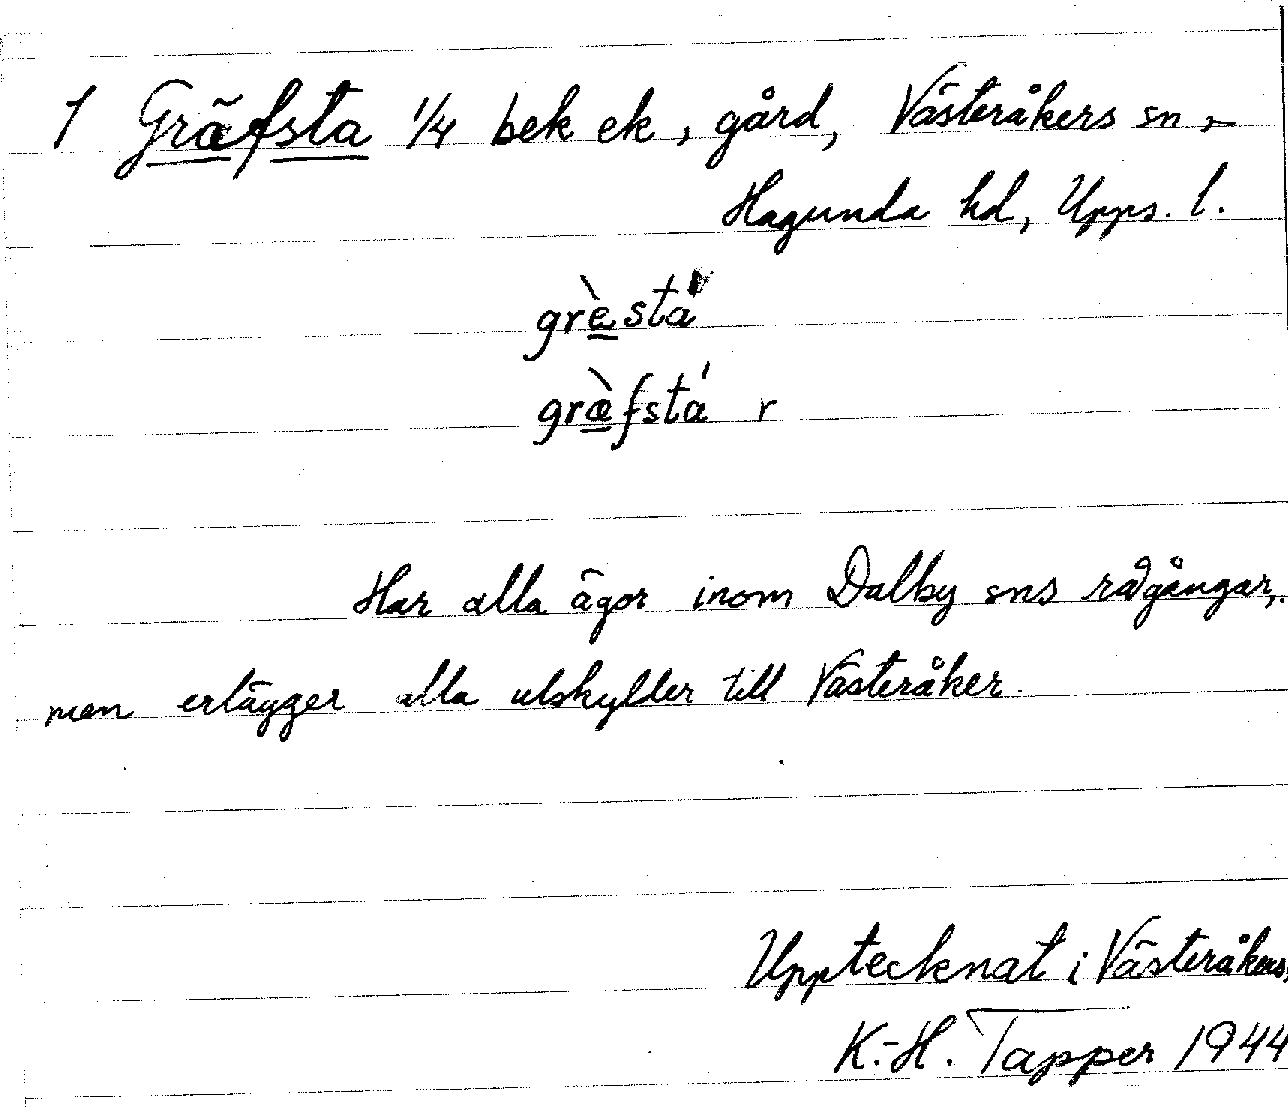 1 Gräfsta 1/4 bek ek, gård, Västeråkers sn,
Hagunda hd, Upps. l.
grè̱stá
græ̱̀fstá r
Har alla ägor inom Dalby sns rågångar,
men erlägger alla utskylder till Västeråker.
Upptecknat i Västeråkers,
K.-H. Tapper 1944